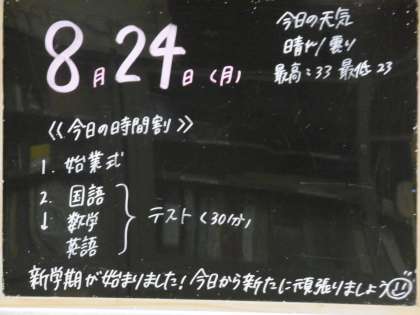 8月24日(月)
今日の天気
晴れ/曇り
最高:33 最低23
《今日の時間割》
1. 始業式
2. 国語
↓ 数学
英語
テスト(30分)
新学期が始まりました!今日から新たに頑張りましょう